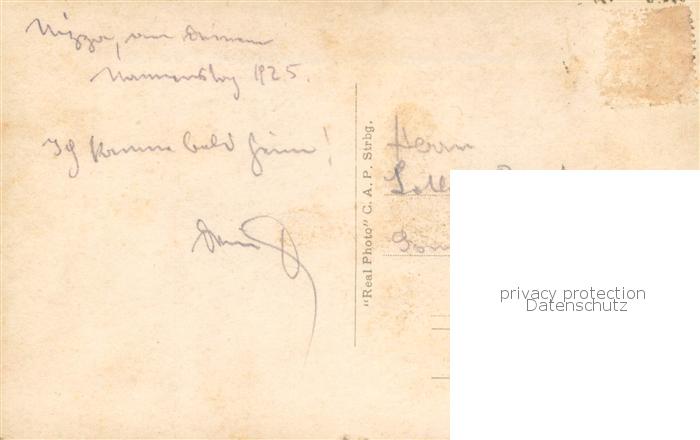 Nizza, an deinem
Namenstag 1925.
Ich komme bald heim!
"Real Photo" C. A. P. Strbg.
Herrn
privacy protection
Datenschutz